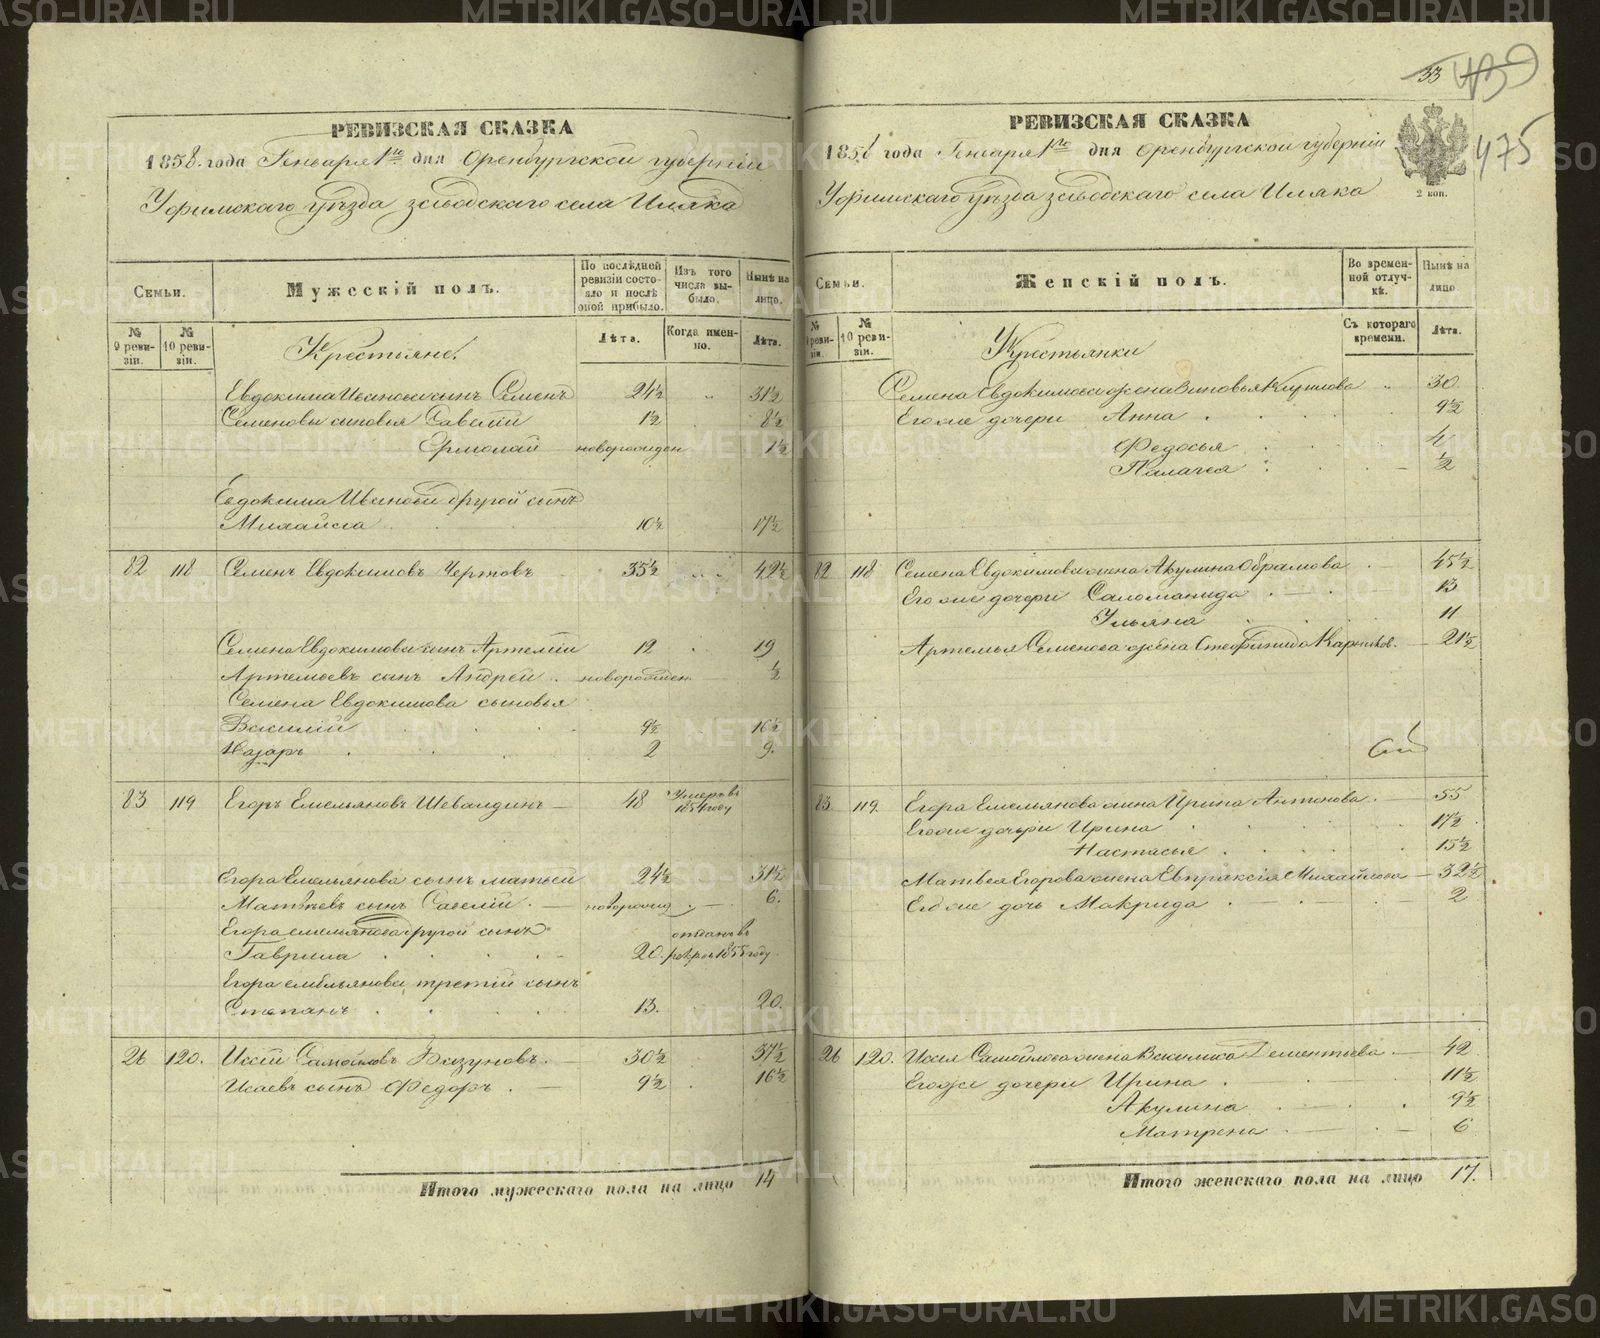 РЕВИЗСКАЯ СКАЗКА
1858 года Генваря 1го дня Оренбургской губернiи
Уфимскаго уѣзда заводскаго села Иляка
Семьи.
Мужескiй полъ.
По послѣдней ревизiи состояло и послѣ оной прибыло.
Изъ того числа выбыло.
Нынѣ на лицо.
№ 9 ревизiи.
№ 10 ревизiи.
Крестьяне.
Лѣта.
Когда именно.
Лѣта.
Евдокима Иванова сынъ Семенъ 24½ „ 31½
Семеновы сыновья Савелiй 1½ 8½
Ермолай новорожден 1½
Евдокима Иванова другой сынъ
Михайла 10½ 17½
82 118 Семенъ Евдокимовъ Чертовъ 35½ „ 42½
Семена Евдокимова сынъ Артемiй 12 19
Артемьевъ сынъ Андрей новорожден ½
Семена Евдокимова сыновья
Василiй 9½ 16½
Назаръ 2 9.
83 119 Егоръ Емельяновъ Шевалдинъ 48 Умеръ въ 1854 году
Егора Емельянова сынъ Матвей 24½ 31½
Матвѣевъ сынъ Савелiй новорожд. 6.
Егора Емельянова другой сынъ
Гаврила 20. отданъ въ рекр. въ 1855 году
Егора Емельянова третiй сынъ
Степанъ 13. 20.
26 120. Исай Самойловъ Вазуновъ. 30½ 37½
Исаевъ сынъ Федоръ. 9½ 16½
Итого мужескаго пола на лицо 14
33
475
РЕВИЗСКАЯ СКАЗКА
1858 года Генваря 1го дня Оренбургской губернiи
2 коп.
Уфимскаго уѣзда заводскаго села Иляка
Семьи.
Женскiй полъ.
Во временной отлучкѣ.
Нынѣ на лицо
№ 9 ревизiи.
№ 10 ревизiи.
Крестьянки
Съ котораго времени.
Лѣта.
Семена Евдокимова жена Зиновья Кирилова „ 30.
Его же дочери Анна 9½
Федосья 4
Палагея ½
82 118 Семена Евдокимова жена Акулина Абрамова 45½
Его же дочери Саломанида 13
Ульяна 11
Артемья Семенова жена Стефанида 21½
83. 119. Егора Емельянова жена Ирина Антонова. 55
Его же дочери Ирина 17½
Настасья 15½
Матвея Егорова жена Евпраксiя Михайлова 32½
Его же дочь Макрида 2
26 120. Исая Самойлова жена Василиса Дементьева 42
Его же дочери Ирина 11½
Акулина 9½
Матрена 6
Итого женскаго пола на лицо 17.
METRIKI.GASO-URAL.RU